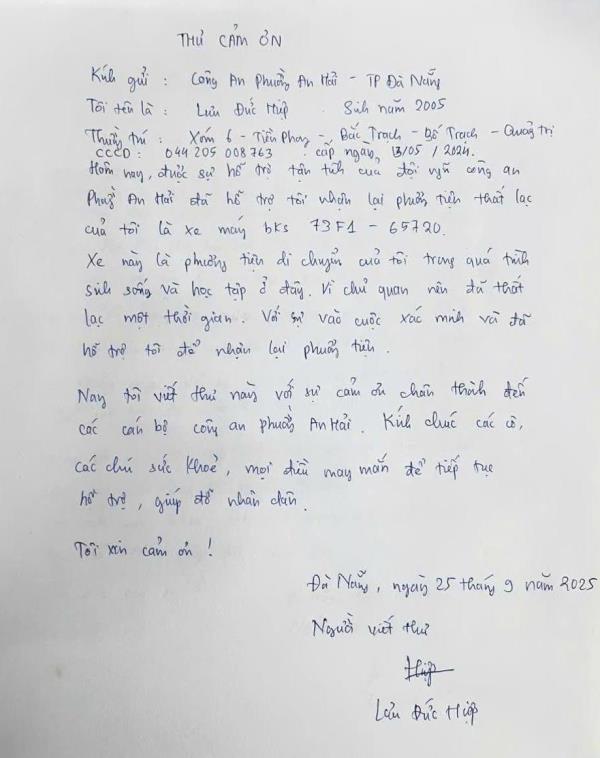 THƯ CẢM ƠN
Kính gửi : Công An Phường An Hải - TP Đà Nẵng
Tôi tên là : Lưu Đức Hiệp . Sinh năm 2005
Thường trú : Xóm 6 - Tiền Phong -, Bắc Trạch - Bố Trạch - Quảng trị
CCCD : 044205 008763 . cấp ngày, 13/05 / 2024.
Hôm nay, được sự hỗ trợ tận tình của đội ngũ công an
Phường An Hải đã hỗ trợ tôi nhận lại phương tiện thất lạc
của tôi là xe máy bks 73F1 - 65720.
Xe này là phương tiện di chuyển của tôi trong quá trình
sinh sống và học tập ở đây. Vì chủ quan nên đã thất
lạc một thời gian. Với sự vào cuộc xác minh và đã
hỗ trợ tôi để nhận lại phương tiện.
Nay tôi viết thư này với sự cảm ơn chân thành đến
các cán bộ công an phường An Hải. Kính chúc các cô,
các chú sức khoẻ, mọi điều may mắn để tiếp tục
hỗ trợ, giúp đỡ nhân dân.
Tôi xin cảm ơn !
Đà Nẵng, ngày 25 tháng 9 năm 2025
Người viết thư
Hiệp
Lưu Đức Hiệp